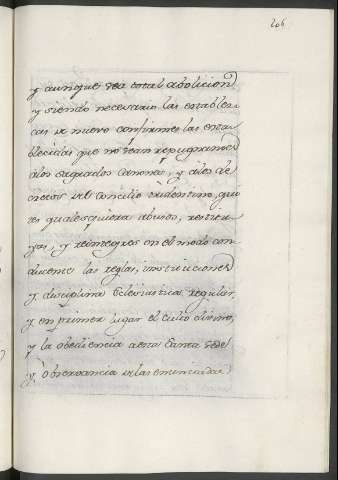 206
y aunque sea total abolicion
y siendo necesario las establez-
cas de nuevo confirmes las esta-
blecidas que no sean repugnantes
alos sagrados Canones, y alos de-
cretos del Concilio tridentino, qui-
tes qualesquiera abusos, restitu-
yas, y reintegres en el modo con-
ducente las reglas, instrucciones
y disciplina Eclesiastica, regular,
y en primer lugar el culto divino,
y la obediencia aesta Santa Sede
y observancia de las enunciadas